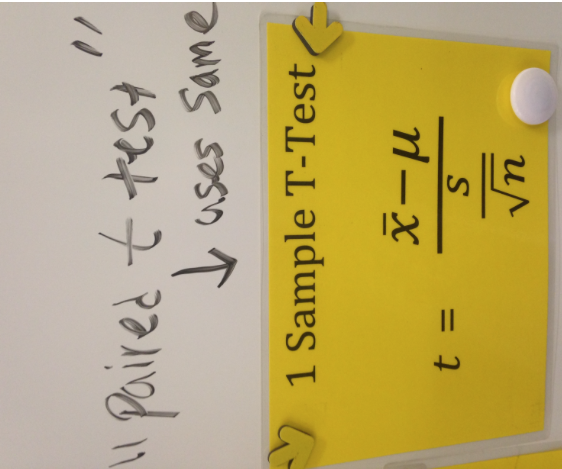 "Paired t test"
↳ uses same
1 Sample T-Test
t = (x̄ − μ) / (s / √n)